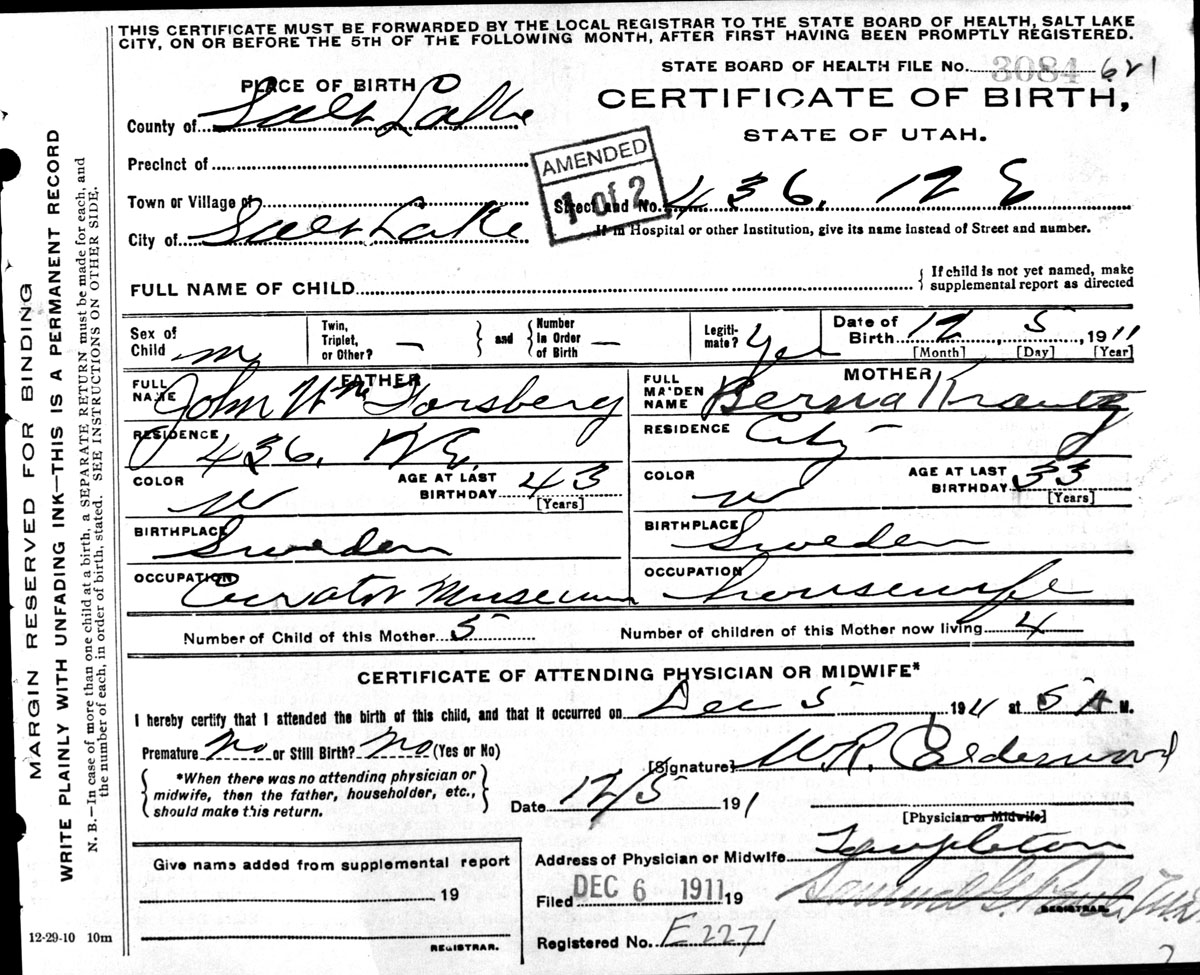 THIS CERTIFICATE MUST BE FORWARDED BY THE LOCAL REGISTRAR TO THE STATE BOARD OF HEALTH, SALT LAKE
CITY, ON OR BEFORE THE 5TH OF THE FOLLOWING MONTH, AFTER FIRST HAVING BEEN PROMPTLY REGISTERED.
STATE BOARD OF HEALTH FILE NO. 3084 621
PLACE OF BIRTH
CERTIFICATE OF BIRTH,
STATE OF UTAH.
County of Salt Lake
Precinct of
AMENDED
1 of 2
Town or Village of
Street and No. 436. 12 E
City of Salt Lake
If in Hospital or other Institution, give its name instead of Street and number.
FULL NAME OF CHILD
{ If child is not yet named, make
supplemental report as directed
Sex of Child m
Twin, Triplet, or Other? —
} and {
Number In Order of Birth —
Legitimate? Yes
Date of Birth 12, 5, 1911
[Month] [Day] [Year]
FATHER
FULL NAME John Wm Forsberg
RESIDENCE 436. 12 E.
COLOR W
AGE AT LAST BIRTHDAY 43
[Years]
BIRTHPLACE Sweden
OCCUPATION Curator Museum
MOTHER
FULL MAIDEN NAME Berna Krantz
RESIDENCE City
COLOR W
AGE AT LAST BIRTHDAY 33
[Years]
BIRTHPLACE Sweden
OCCUPATION housewife
Number of Child of this Mother 5
Number of children of this Mother now living 4
CERTIFICATE OF ATTENDING PHYSICIAN OR MIDWIFE*
I hereby certify that I attended the birth of this child, and that it occurred on Dec 5 1911 at 5 A M.
Premature No or Still Birth? No (Yes or No)
{ *When there was no attending physician or
midwife, then the father, householder, etc.,
should make this return. }
[Signature] W.R. Calderwood
Date 12/5 191 1
[Physician or Midwife]
Address of Physician or Midwife Templeton
Filed DEC 6 1911 19
Samuel G. Paul
REGISTRAR.
Registered No. E2271
Give name added from supplemental report
19
REGISTRAR.
12-29-10 10m
MARGIN RESERVED FOR BINDING
WRITE PLAINLY WITH UNFADING INK—THIS IS A PERMANENT RECORD
N. B.—In case of more than one child at a birth, a SEPARATE RETURN must be made for each, and
the number of each, in order of birth, stated. SEE INSTRUCTIONS ON OTHER SIDE.